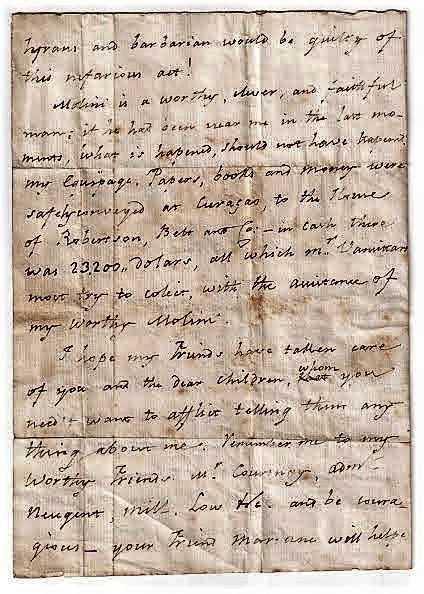 tyrans and barbarian would be guilty of
this nefarious act!
Molini is a worthy, clever, and faithful
man; if he had been near me in the last mo-
ments, what is hapened, should not have hapend
my Equipage, Papers, books and money were
safely conveyed at Curaçao to the House
of Robertson, Belt and Co: - in cash there
was 23200,, dolars, all which mr. Vansittart
most try to colect, with the asistance of
my worthy Molini.
I hope my Friends have taken care
of you and the dear children, whom you
need't want to afflict telling them any
thing about me. Remember me to my
Worthy Friends Mr. Courtney, adml
Neugent, Mill, Low &c. and be coura-
gious - your Friend Mariane will helpe